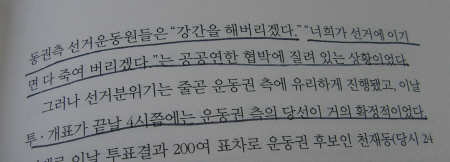 동권측 선거운동원들은 “강간을 해버리겠다.” “너희가 선거에 이기
면 다 죽여 버리겠다.”는 공공연한 협박에 질려 있는 상황이었다.
그러나 선거분위기는 줄곧 운동권 측에 유리하게 진행됐고, 이날
투·개표가 끝날 4시쯤에는 운동권 측의 당선이 거의 확정적이었다.
이날 투표결과 200여 표차로 운동권 후보인 천재동(당시 24